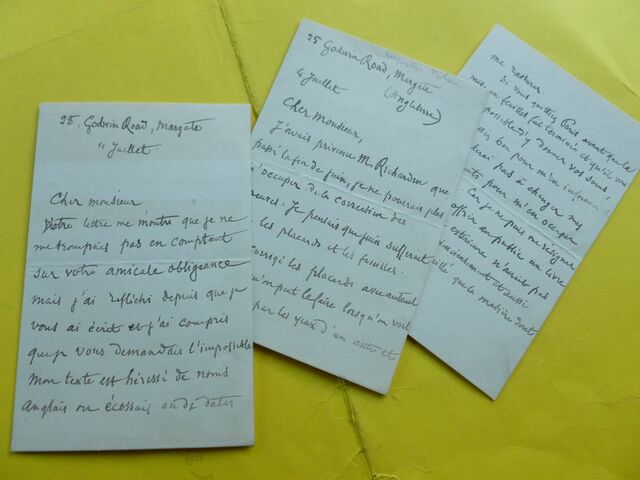 25, Godwin Road, Margate
11 Juillet.
Cher monsieur
Votre lettre me montre que je ne
me trompais pas en comptant
sur votre amicale obligeance
mais j'ai réfléchi depuis que je
vous ai écrit et j'ai compris
que je vous demandais l'impossible
Mon texte est hérissé de noms
anglais ou écossais ou de dates
25 Godwin Road, Margate
(Angleterre)
Juillet
Cher Monsieur,
J'avais prévenu M. Richardin que
passé la fin de juin, je ne pourrais plus
m'occuper de la correction des
Je pensais que juin suffirait
les placards et les feuilles.
corrigé les placards avec autant
qu'on peut le faire lorsqu'on voit
par les yeux d'un autre et
me rassurer.
Si vous quittiez Paris avant que la
mise en feuilles fut terminée et qu'il vous
d'y donner vos soins,
bon pour m'en informer et
à changer mes
pour m'en occuper
Car je ne puis me résigner
offrir au public un livre
extérieure n'aurait pas
et aussi
que la matière dont